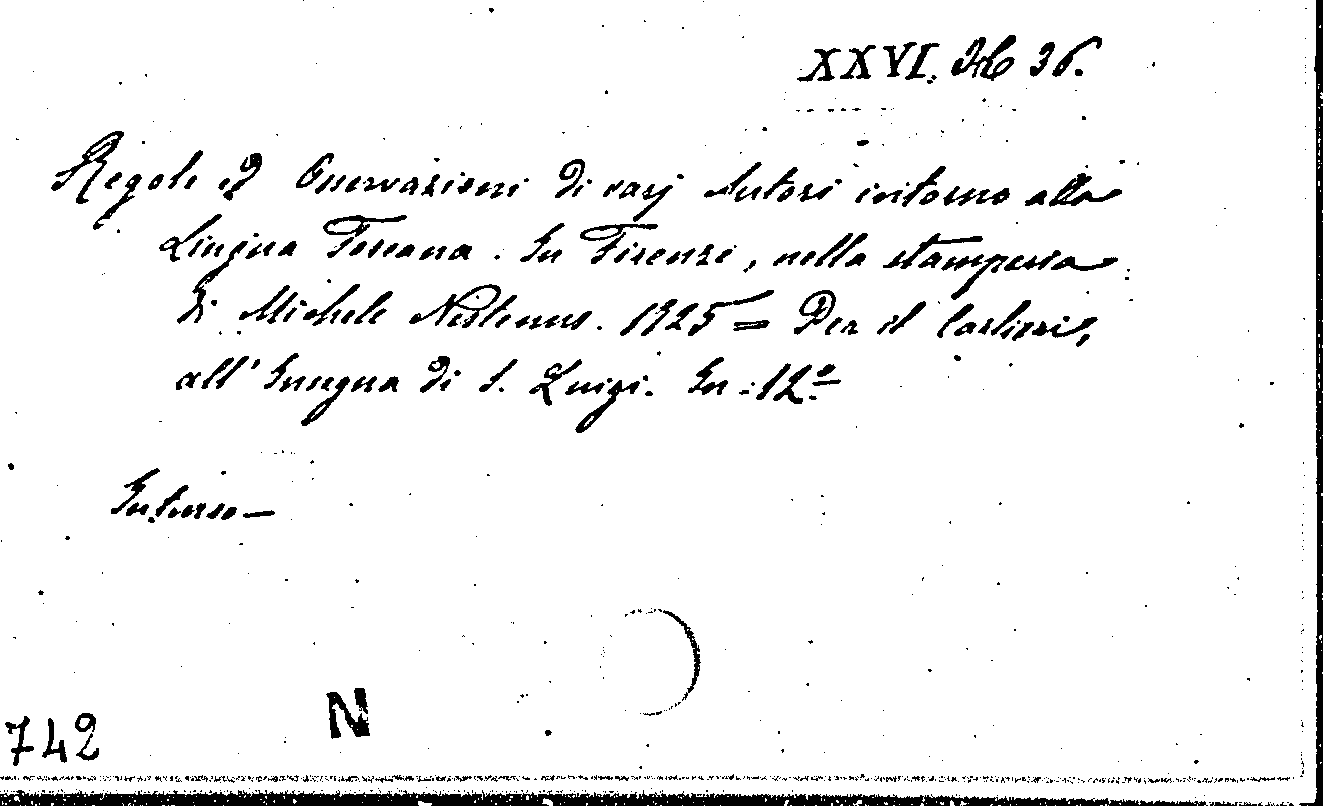 XXVI. H 36.
Regole ed Osservazioni di varj Autori intorno alla
Lingua Toscana. In Firenze, nella stamperia
di Michele Nestenus. 1725 = Per il Carlieri,
all' Insegna di S. Luigi. In - 12º
N
742